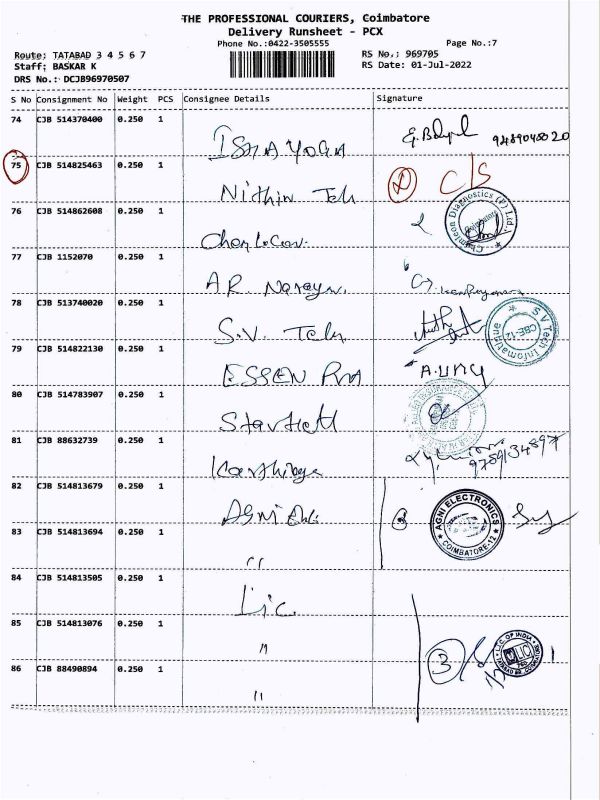 THE PROFESSIONAL COURIERS, Coimbatore
Delivery Runsheet - PCX
Phone No.:0422-3505555 Page No.:7
Route: TATABAD 3 4 5 6 7 RS No.: 969705
Staff: BASKAR K RS Date: 01-Jul-2022
DRS No.: DCJB96970507
S No Consignment No Weight PCS Consignee Details Signature
74 CJB 514370400 0.250 1 ISHA YOGA 9489045020
75 CJB 514825463 0.250 1 Nithin Teh C/S
76 CJB 514862608 0.250 1 Chemicon Diagnostics (P) Ltd.,
77 CJB 1152070 0.250 1 A R Narayan.
78 CJB 513740020 0.250 1 S.V. Tech S V Tech Infomatique CBE-12
79 CJB 514822130 0.250 1 ESSEN
80 CJB 514783907 0.250 1
81 CJB 88632739 0.250 1 9789134897
82 CJB 514813679 0.250 1 Agni 2 AGNI ELECTRONICS COIMBATORE-12
83 CJB 514813694 0.250 1 ״
84 CJB 514813505 0.250 1 Lic.
85 CJB 514813076 0.250 1 ״ 3 L.I.C. OF INDIA LIC
86 CJB 88490894 0.250 1 ״